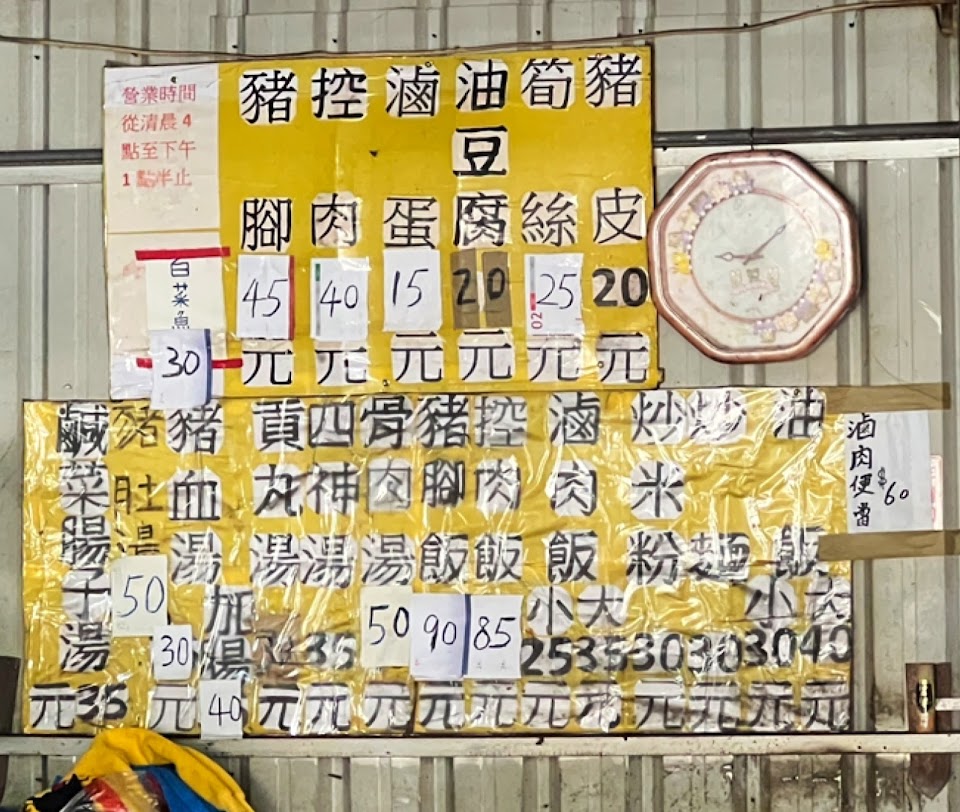 營業時間
從清晨4
點至下午
1點半止
白菜魚
30
豬腳
45
元
控肉
40
元
滷蛋
15
元
油豆腐
20
元
筍絲
25
02
元
豬皮
20
元
鹹菜腸子湯
35
元
豬肚湯
50
豬血湯
30
元
加湯
40
貢丸湯
元
四神湯
35
元
骨肉湯
50
元
豬腳飯
90
元
控肉飯
85
元
滷肉飯
小 大
25 35
元 元
炒米粉
30
元
炒麵
30
元
油飯
小 大
30 40
元 元
滷肉便當
$60